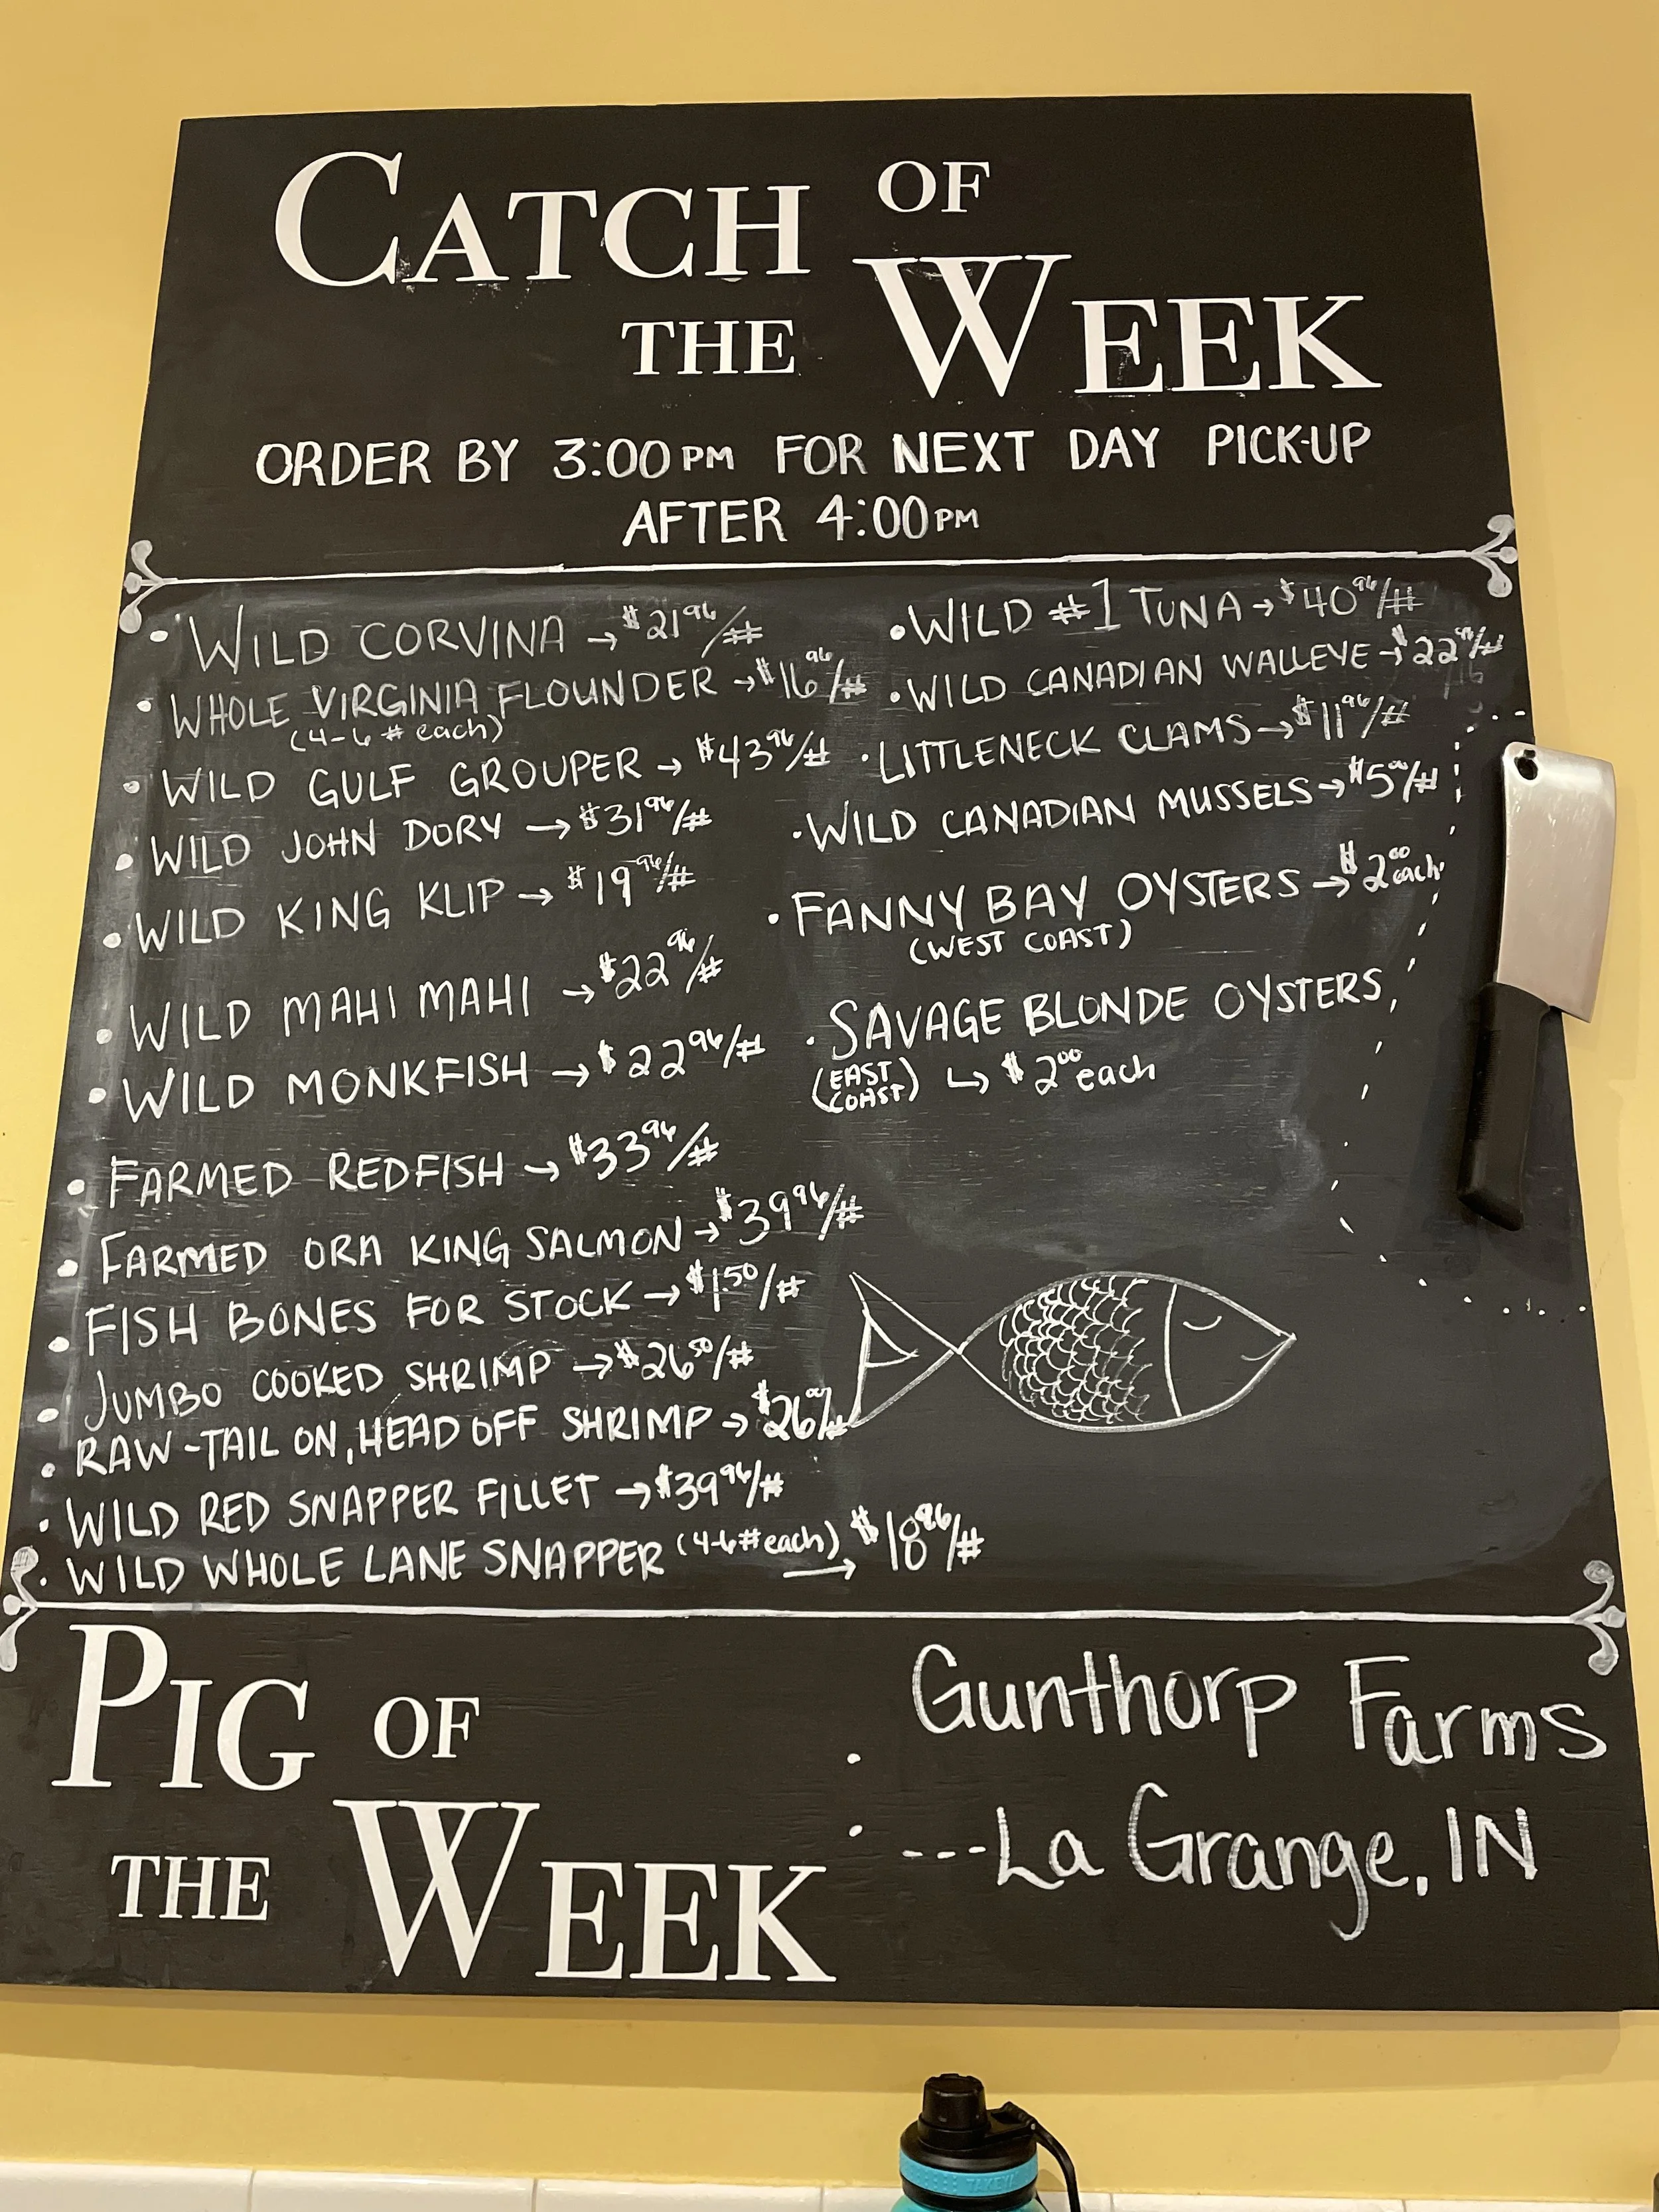 CATCH OF
THE WEEK
ORDER BY 3:00PM FOR NEXT DAY PICK-UP
AFTER 4:00PM
• WILD CORVINA → $21⁹⁶/#
• WHOLE VIRGINIA FLOUNDER → $16⁹⁶/#
(4-6# each)
• WILD GULF GROUPER → $43⁹⁶/#
• WILD JOHN DORY → $31⁹⁶/#
• WILD KING KLIP → $19⁹⁶/#
• WILD MAHI MAHI → $22⁹⁶/#
• WILD MONKFISH → $22⁹⁶/#
• FARMED REDFISH → $33⁹⁶/#
• FARMED ORA KING SALMON → $39⁹⁶/#
• FISH BONES FOR STOCK → $1⁵⁰/#
• JUMBO COOKED SHRIMP → $26⁵⁰/#
• RAW-TAIL ON, HEAD OFF SHRIMP → $26/#
• WILD RED SNAPPER FILLET → $39⁹⁶/#
• WILD WHOLE LANE SNAPPER (4-6# each) → $18⁹⁶/#
• WILD #1 TUNA → $40⁹⁶/#
• WILD CANADIAN WALLEYE → $22⁹⁶/#
• LITTLENECK CLAMS → $11⁹⁶/#
• WILD CANADIAN MUSSELS → $5⁰⁰/#
• FANNY BAY OYSTERS → $2⁰⁰ each
(WEST COAST)
• SAVAGE BLONDE OYSTERS
(EAST COAST) ↳ $2⁰⁰ each
PIG OF
THE WEEK
: Gunthorp Farms
---La Grange, IN
TAKEYA